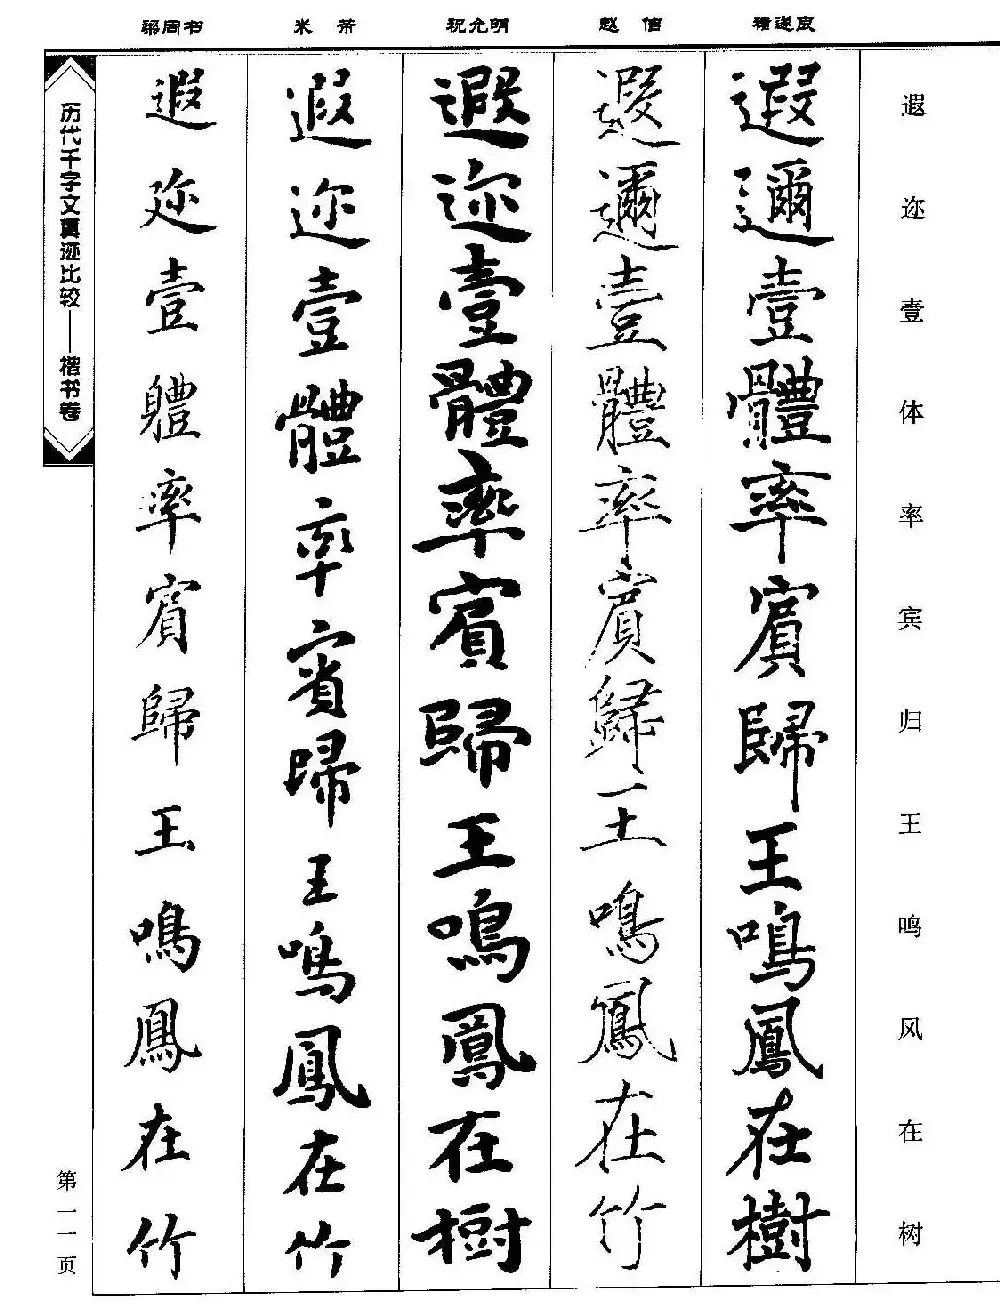 遐迩壹体率宾归王鸣风在树
褚遂良
遐邇壹體率賓歸王鳴鳳在樹
赵佶
遐邇壹體率賓歸王鳴鳳在竹
祝允明
遐迩壹體率賓歸王鳴鳳在樹
米芾
遐迩壹體率賓歸王鳴鳳在竹
梁同书
遐迩壹軆率賓歸王鳴鳳在竹
历代千字文真迹比较——楷书卷
第一一页